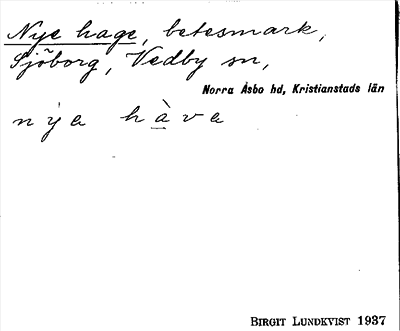 Nye hage, betesmark,
Sjöborg, Vedby sn,
Norra Åsbo hd, Kristianstads län
nýa hàva
BIRGIT LUNDKVIST 1937